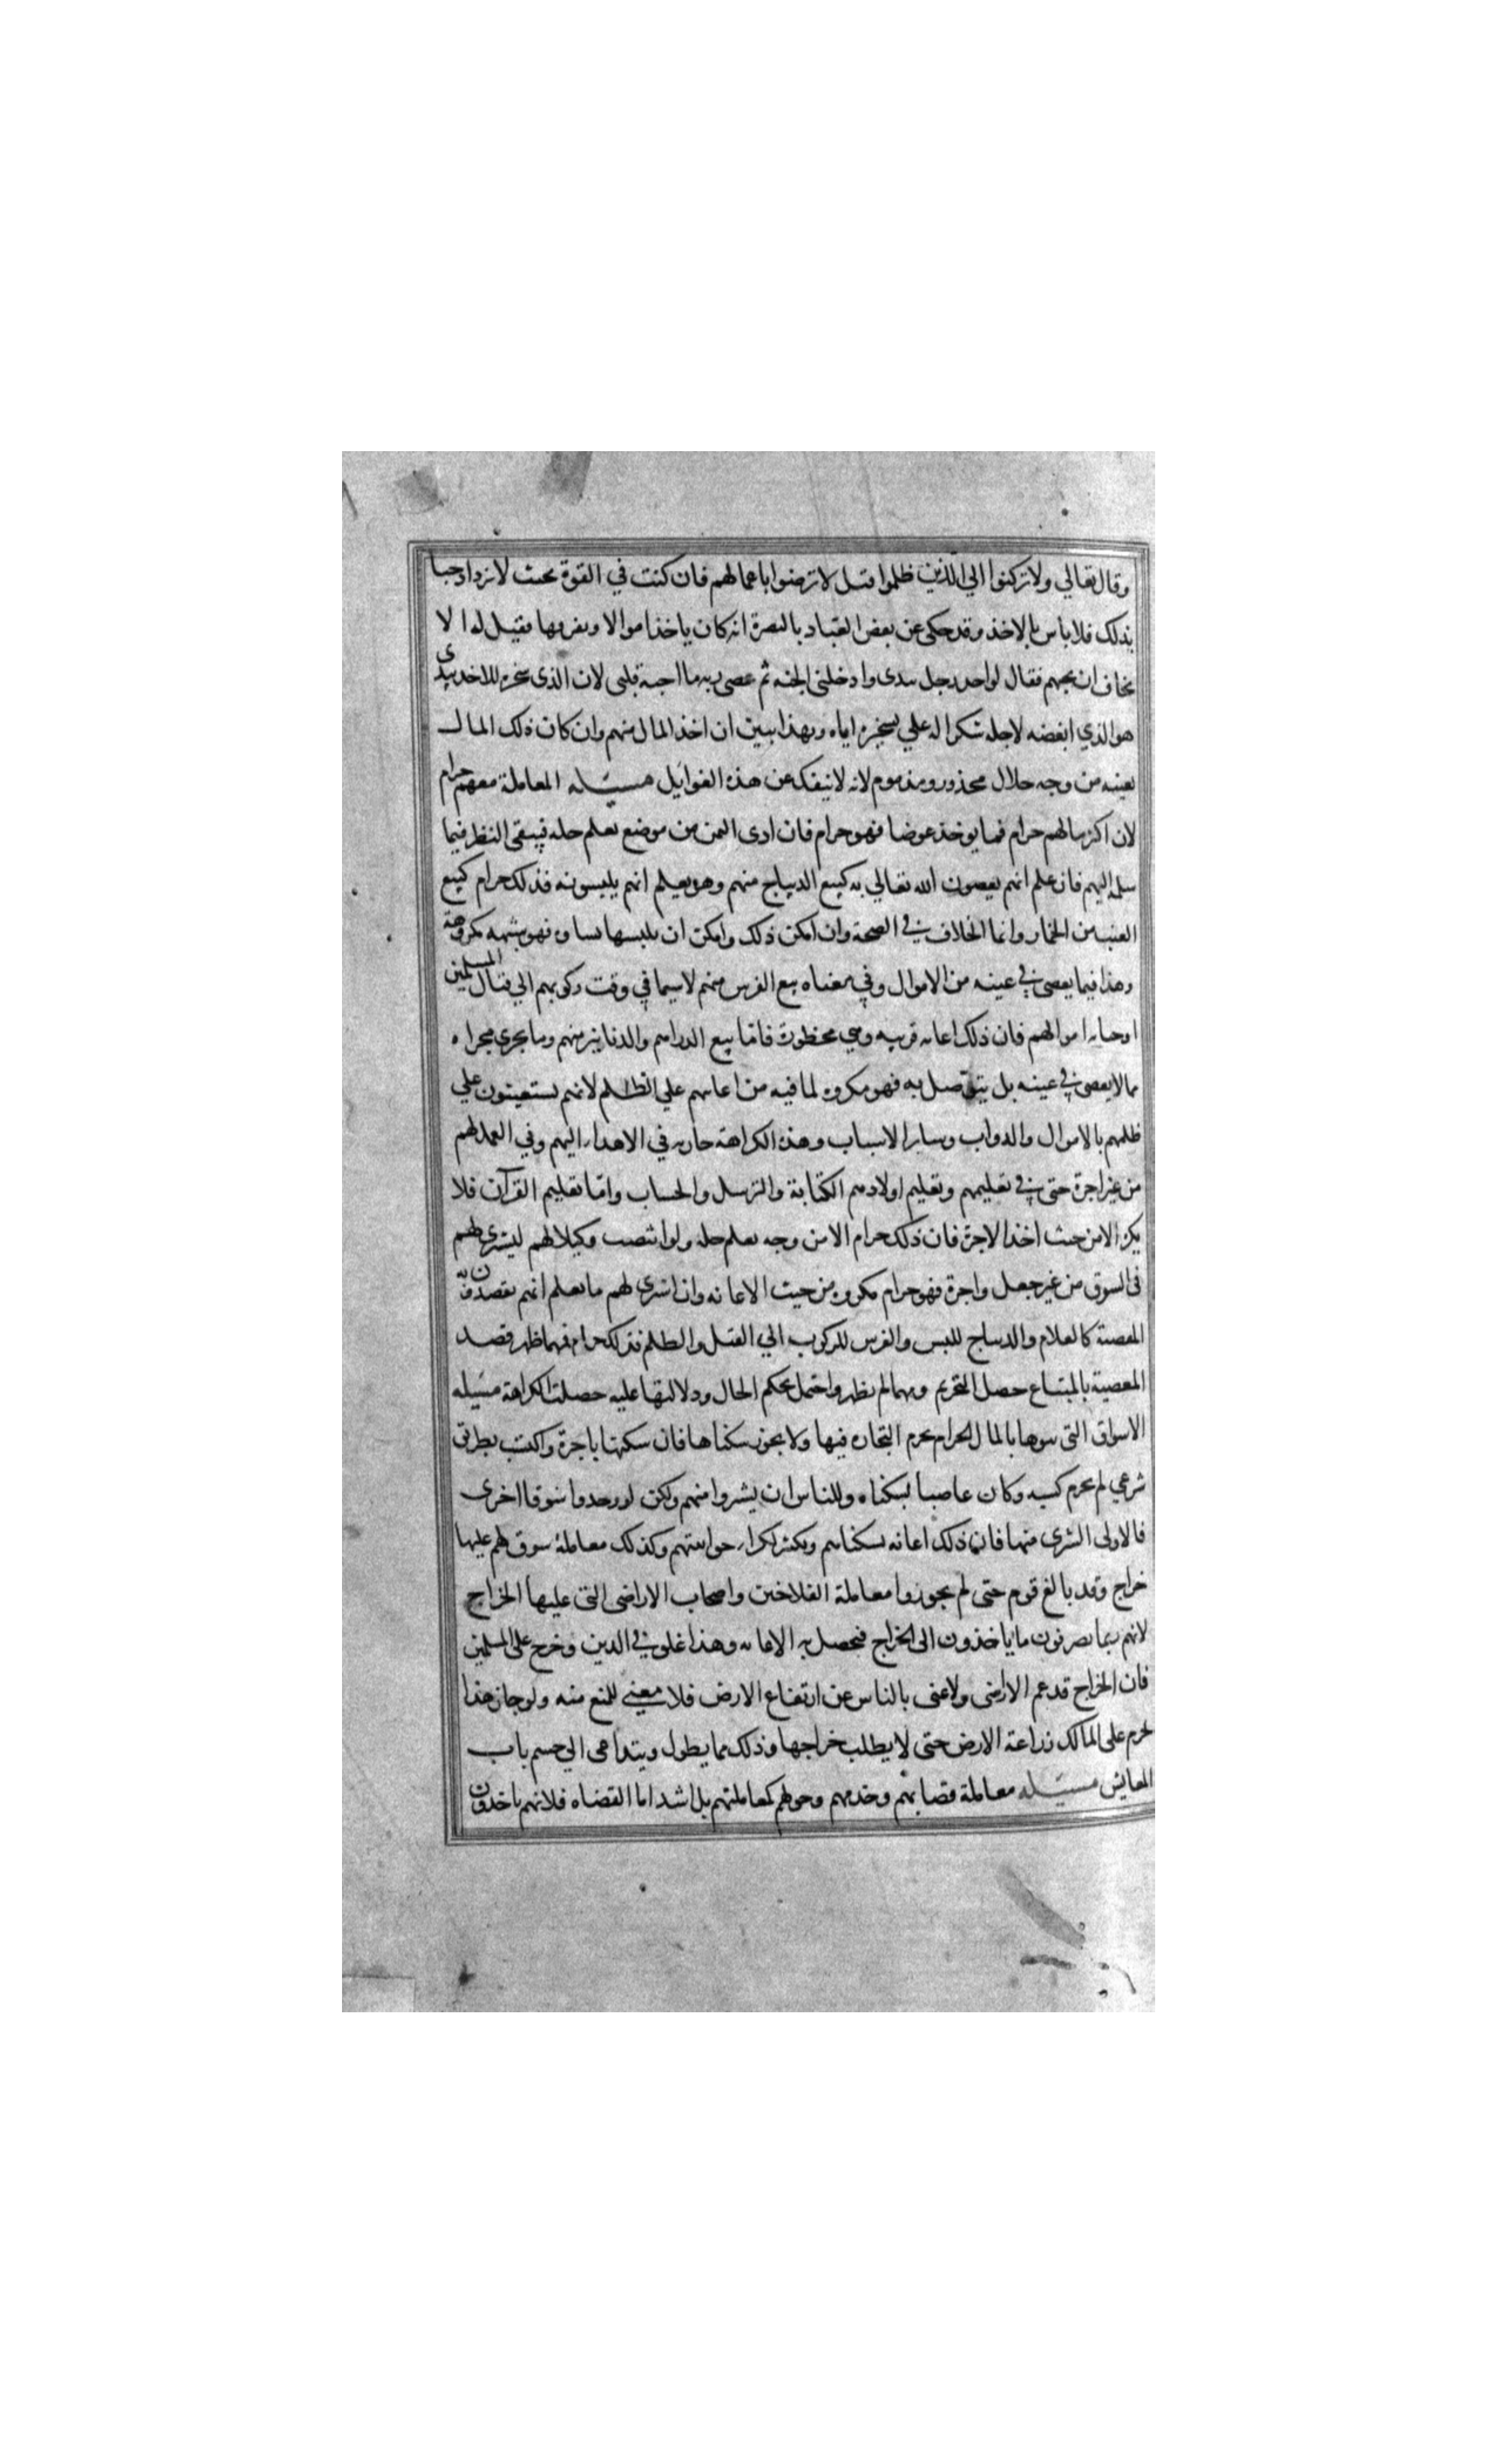 وقال تعالي ولا تركنوا الي الذين ظلموا قيل لا ترضوا باعمالهم فان كنت في القوة بحيث لا تزداد حبا
بذلك فلا باس بالاخذ وقد حكي عن بعض العباد بالبصرة انه كان ياخذ اموالا ويفرقها فقيل له الا
تخاف ان تحبهم فقال لو اخذ رجل بيدي وادخلني الجنه ثم عصي ربه ما احبه قلبي لان الذي سخره للاخذ بيدي
هو الذي ابغضه لاجله شكرا له علي تسخيره اياه وبهذا تبين ان اخذ المال منهم وان كان ذلك المال
بعينه من وجه حلال محذور ومذموم لانه لا ينفك عن هذه الغوايل مسيله المعاملة معهم حرام
لان اكثر مالهم حرام فما يوخذ عوضا فهو حرام فان ادي الثمن من موضع يعلم حله فيبقي النظر فيما
سلم اليهم فان علم انهم يعصون الله تعالي به كبيع الديباج منهم وهو يعلم انهم يلبسونه فذلك حرام كبيع
العنب من الخمار وانما الخلاف في الصحة وان امكن ذلك وامكن ان يلبسها نساه فهو شبهه مكروهة
وهذا فيما يعصي في عينه من الاموال وفي معناه بيع الفرس منهم لا سيما في وقت ركوبهم الي قتال المسلمين
او جبايه اموالهم فان ذلك اعانه قريبه وهي محظورة فاما بيع الدراهم والدنانير منهم وما يجري مجراه
مما لا يعصي في عينه بل يتوصل به فهو مكروه لما فيه من اعانتهم علي الظلم لانهم يستعينون علي
ظلمهم بالاموال والدواب وساير الاسباب وهذه الكراهة جاريه في الاهداء اليهم وفي العمل لهم
من غير اجرة حتي في تعليمهم وتعليم اولادهم الكتابة والترسل والحساب واما تعليم القرآن فلا
يكره الا من حيث اخذ الاجرة فان ذلك حرام الا من وجه يعلم حله ولو انتصب وكيلا لهم ليشتري لهم
في السوق من غير جعل واجرة فهو حرام مكروه من حيث الاعانه وان اشتري لهم ما يعلم انهم يقصدون به
المعصية كالغلام والديباج للبس والفرس للركوب الي القتل والظلم فذلك حرام فمهما ظهر قصد
المعصية بالمبتاع حصل التحريم ومهما لم يظهر واحتمل بحكم الحال ودلالتها عليه حصلت الكراهة مسيله
الاسواق التي بنوها بالمال الحرام يحرم التجاره فيها ولا يجوز سكناها فان سكنها باجرة واكتسب بطريق
شرعي لم يحرم كسبه وكان عاصيا بسكناه وللناس ان يشتروا منهم ولكن لو وجدوا سوقا اخري
فالاولي الشري منها فان ذلك اعانه لسكناهم وتكثير لكراء حوانيتهم وكذلك معاملة سوق لهم عليها
خراج وقد بالغ قوم حتي لم يجوزوا معاملة الفلاحين واصحاب الاراضي التي عليها الخراج
لانهم ربما يصرفون ما ياخذون الي الخراج فيحصل به الاعانه وهذا غلو في الدين وحرج علي المسلمين
فان الخراج قد عم الاراضي ولا غني بالناس عن ارتفاع الارض فلا معني للمنع منه ولو جاز هذا
لحرم علي المالك زراعة الارض حتي لا يطلب خراجها وذلك مما يطول ويتداعي الي حسم باب
المعايش مسيله معاملة قضاتهم وخدمهم حرام كمعاملتهم بل اشد اما القضاه فلانهم ياخذون